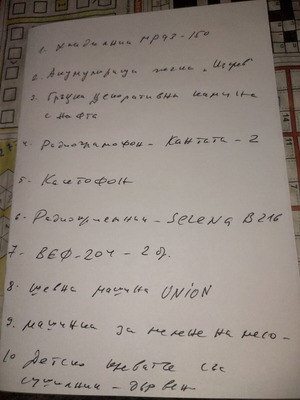 1. Хладилник мраз-150
2. Акумулираща печка
3. Гръцка декоративна камина
с нафта
4. Радиограмофон - Кантата - 2
5 - Касетофон
6 - Радиоприемник - SELENA B 216
7 - ВЕФ-204 - 2 бр.
8 - шевна машина UNION
9. машинка за мелене на месо -
10 Детско креватче със
сушилник - дървен